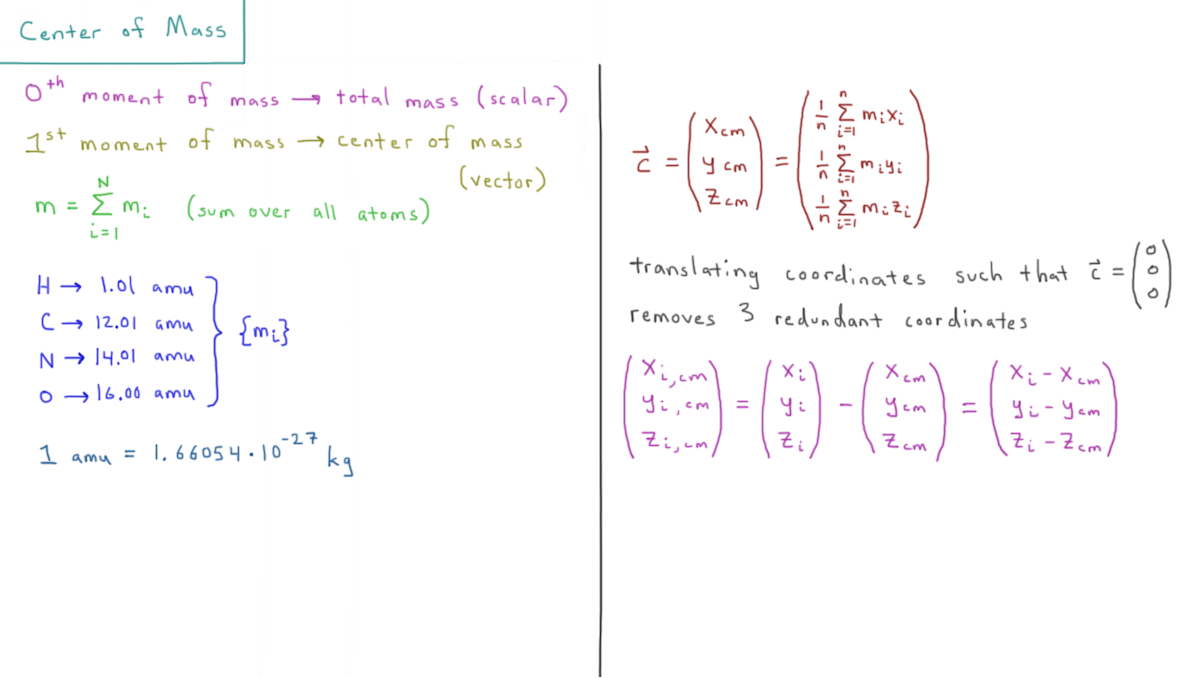 Center of Mass
0th moment of mass → total mass (scalar)
1st moment of mass → center of mass
(vector)
m = N Σ i=1 mi (sum over all atoms)
H → 1.01 amu
C → 12.01 amu
N → 14.01 amu
O → 16.00 amu
{mi}
1 amu = 1.66054 · 10^-27 kg
c⃗ = (xcm ycm zcm) = (1/n n Σ i=1 mixi 1/n n Σ i=1 miyi 1/n n Σ i=1 mizi)
translating coordinates such that c⃗ = (0 0 0)
removes 3 redundant coordinates
(xi,cm yi,cm zi,cm) = (xi yi zi) - (xcm ycm zcm) = (xi - xcm yi - ycm zi - zcm)